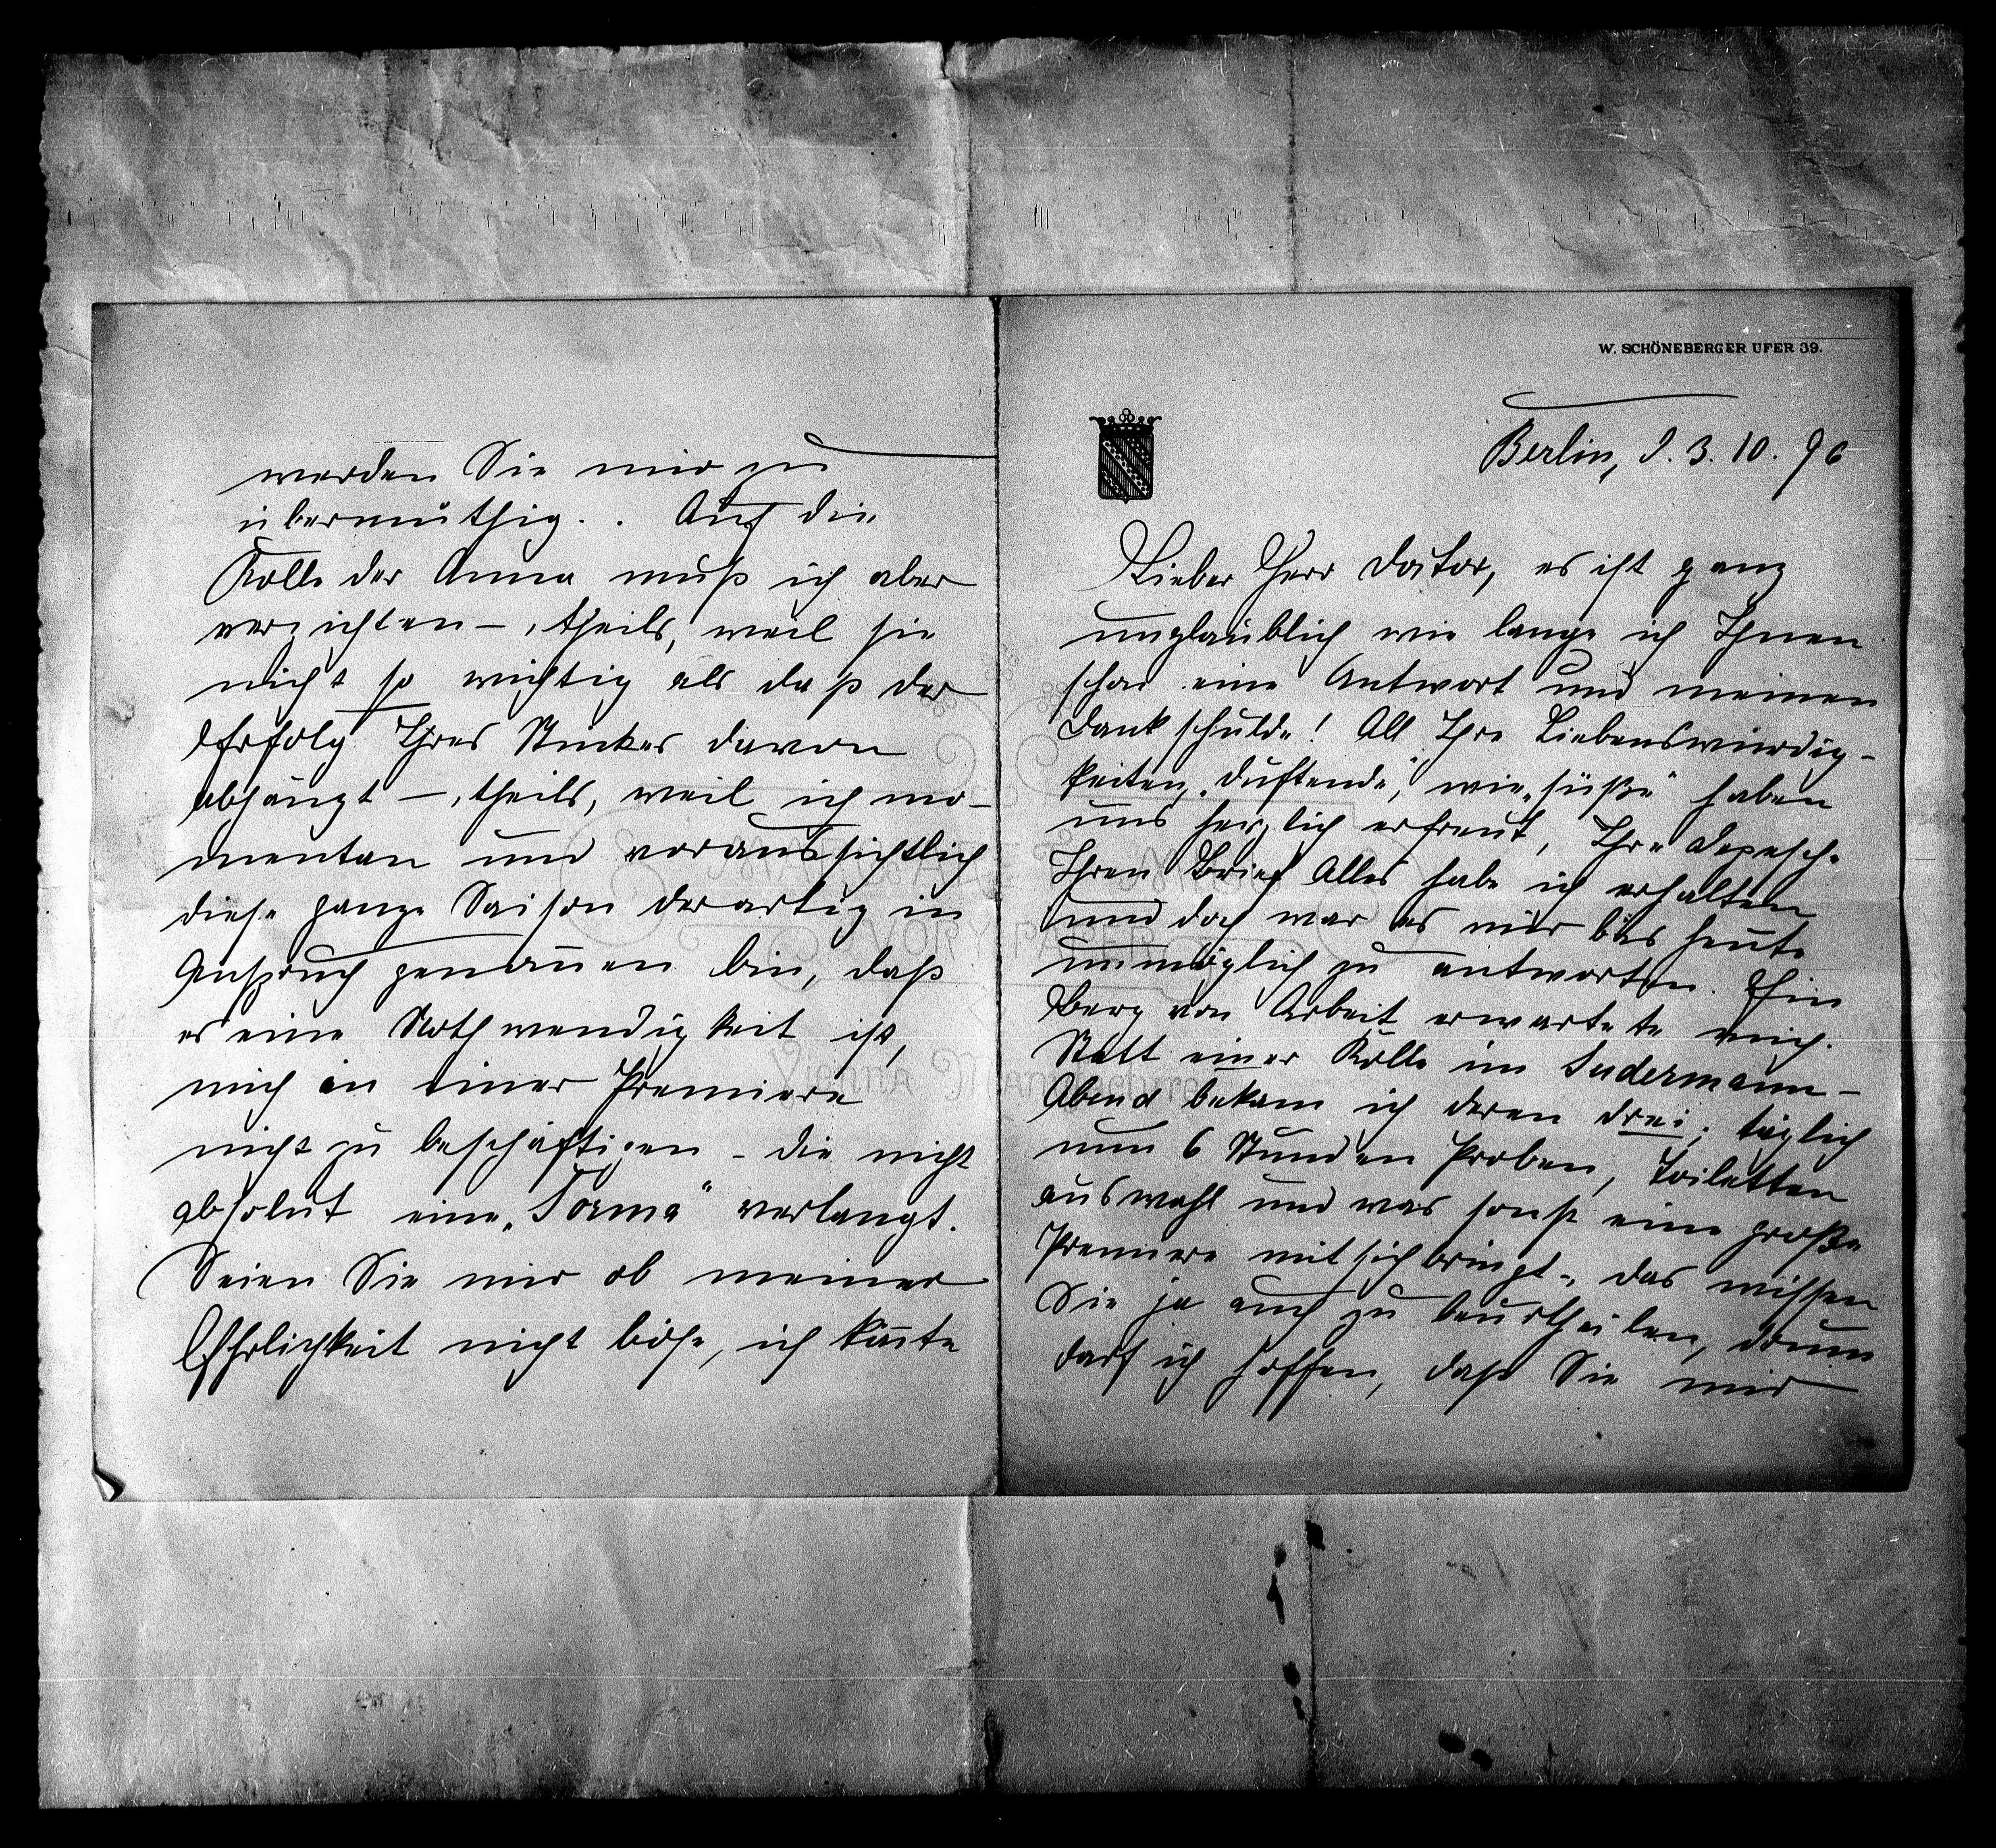 W. SCHÖNEBERGER UFER 39.
Berlin, d. 3. 10. 96
Lieber Herr Doktor, es ist ganz
unglaublich wie lange ich Ihnen
schon eine Antwort und meinen
Dank schulde! All Ihre Liebenswürdig-
keiten, „duftende“, wie „süße“ haben
uns herzlich erfreut, Ihre Depesche
Ihren Brief Alles habe ich erhalten
und doch war es mir bis heute
unmöglich zu antworten. Ein
Berg von Arbeit erwartete mich.
Statt einer Rolle im Sudermann-
Abend bekam ich deren drei; täglich
nun 6 Stunden Proben, Toiletten
auswahl und was sonst eine große
Premiere mit sich bringt, das wissen
Sie ja auch zu beurtheilen, drum
darf ich hoffen, daß Sie mir
werden Sie mir zu
übermüthig.. Auf die
Rolle der Anna muß ich aber
verzichten –, theils, weil sie
nicht so wichtig als daß der
Erfolg Ihres Stückes davon
abhängt –, theils, weil ich mo-
mentan und voraussichtlich
diese ganze Saison derartig in
Anspruch genom̄en bin, daß
es eine Nothwendigkeit ist,
mich in einer Premiere
nicht zu beschäftigen – die nicht
absolut eine „Sorma“ verlangt.
Seien Sie mir ob meiner
Ehrlichkeit nicht böse, ich kön̄te
MANUFACTURE
IVORY PAPER
VIENNA